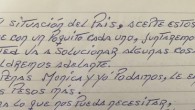 situación del País, acepte estos
con un poquito cada uno, juntaremos
ted va a solucionar algunas cosa
ldremos adelante.
Monica y yo Podamos, le en
pesos más.
lo que nos pueda necesitar.